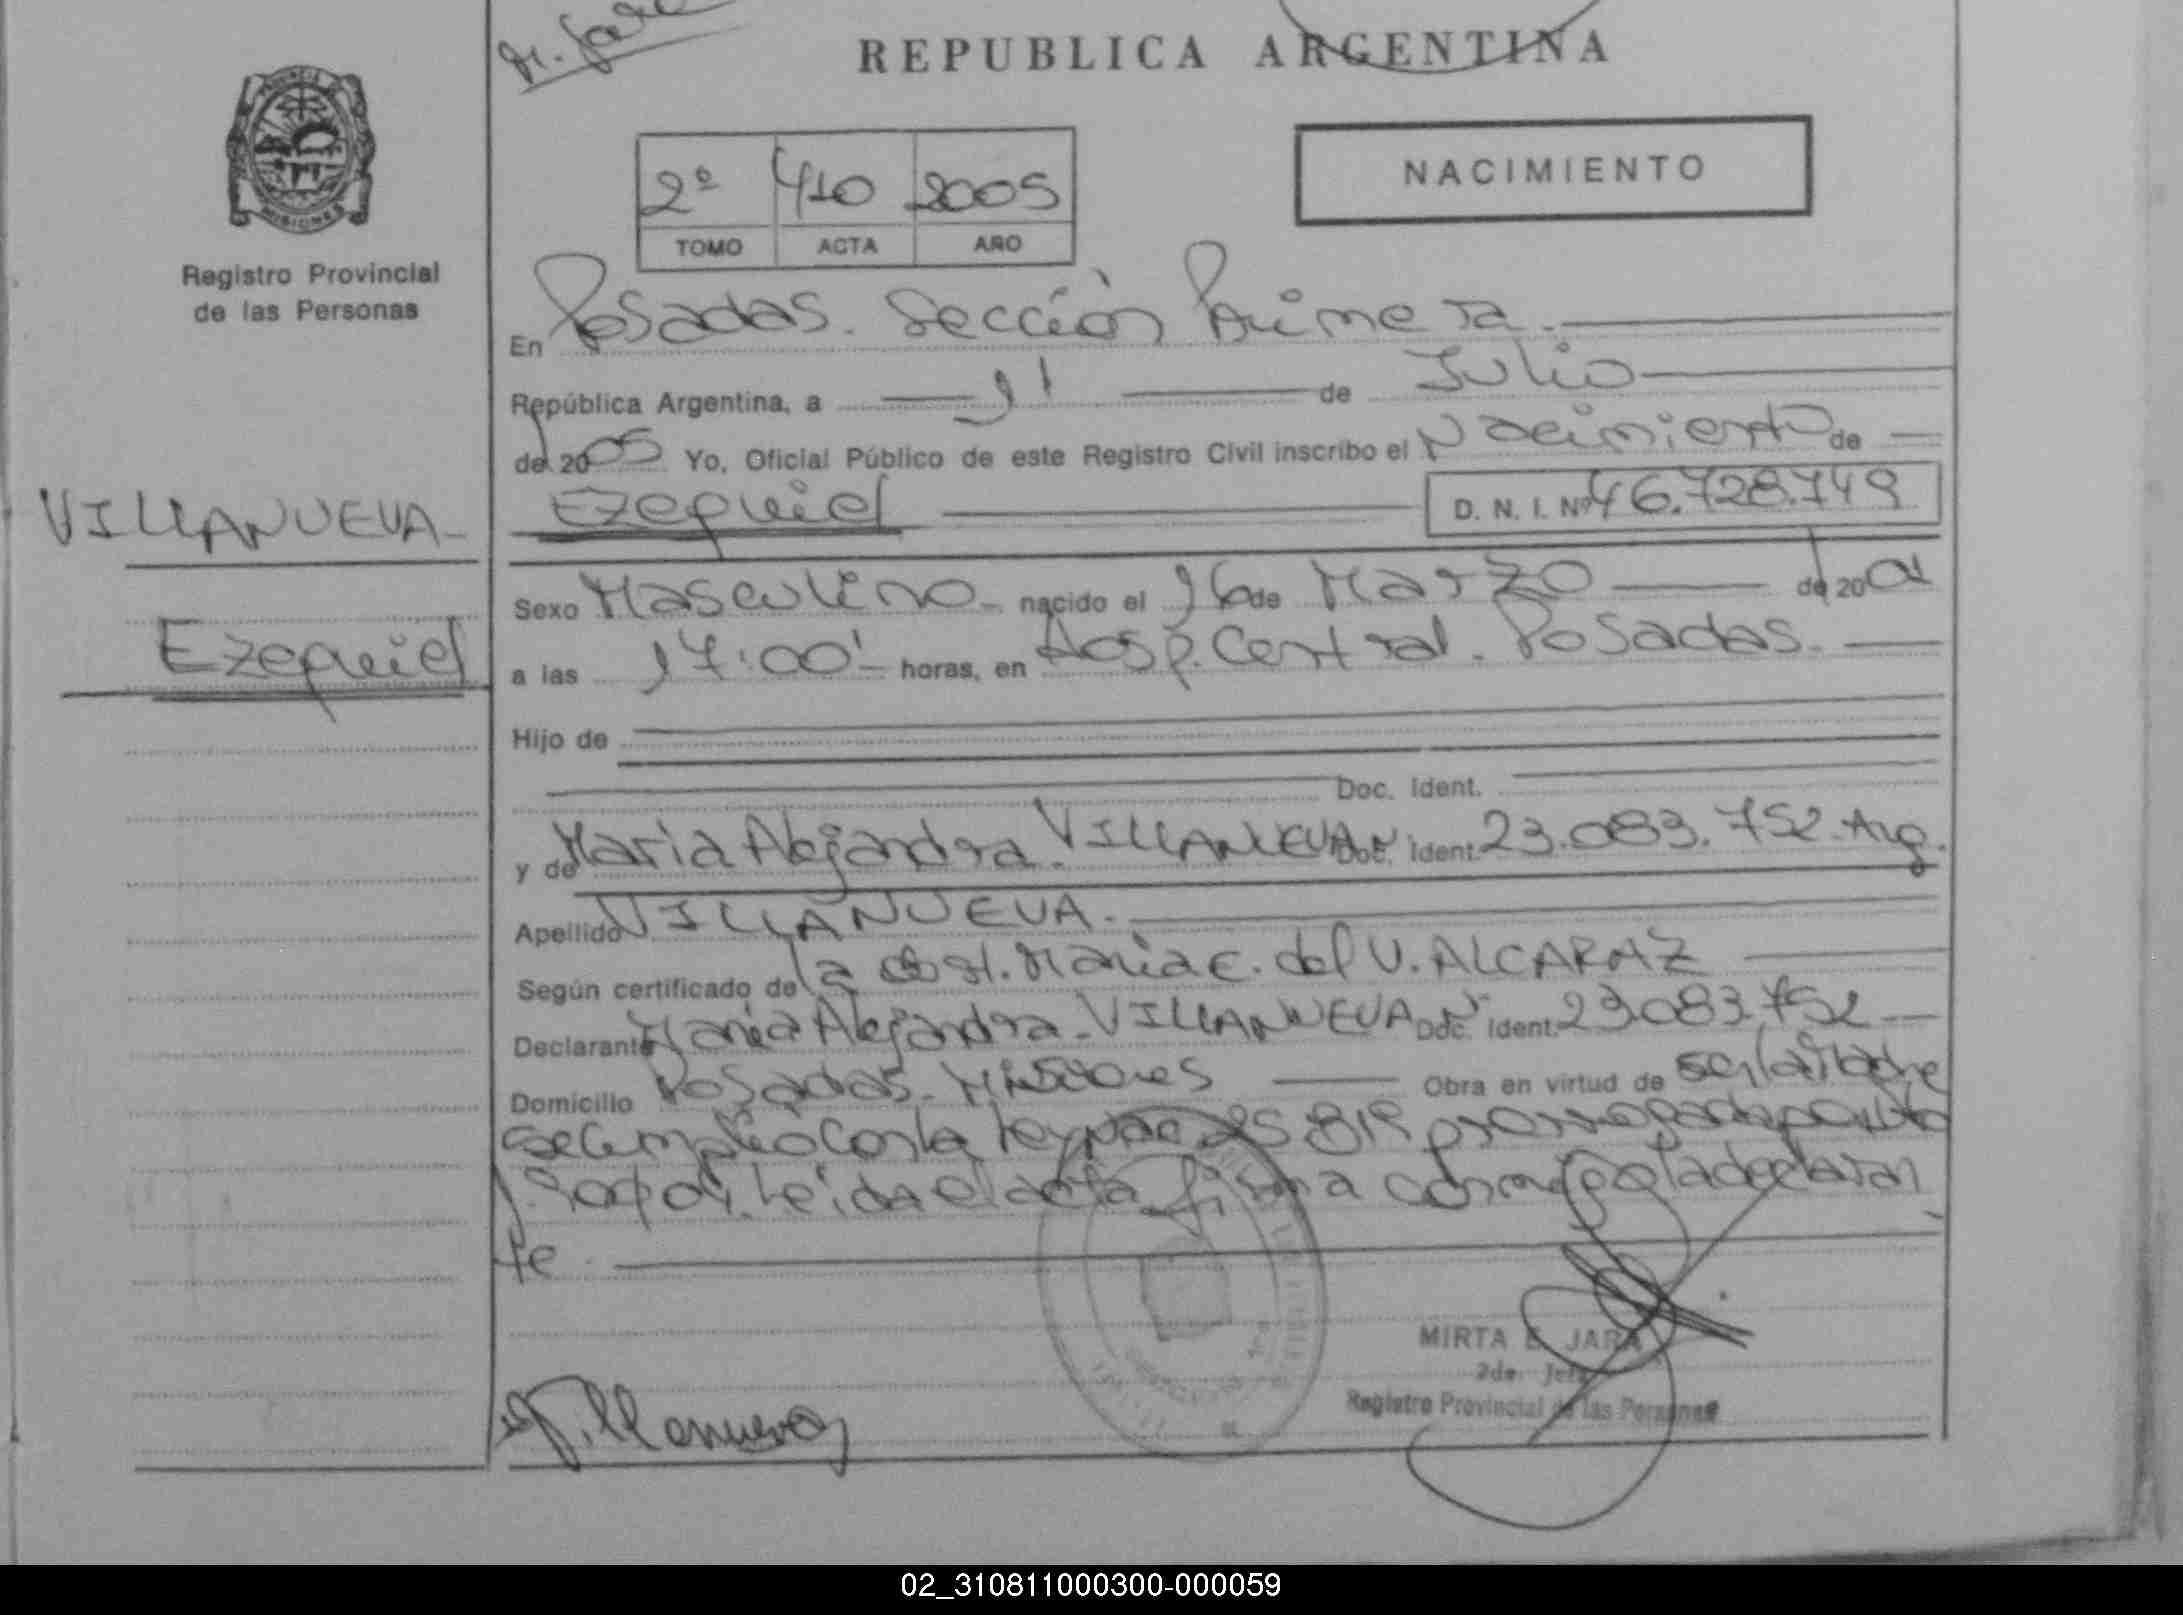 M. Jara
REPUBLICA ARGENTINA
PROVINCIA
MISIONES
Registro Provincial
de las Personas
2º 410 2005
TOMO ACTA AÑO
NACIMIENTO
En Posadas. Sección Primera.
República Argentina, a 11 de Julio
de 2005 Yo, Oficial Público de este Registro Civil inscribo el Nacimiento de
VILLANUEVA
Ezequiel D. N. I. Nº 46.728.749
Sexo Masculino nacido el 16 de Marzo de 20 01
Ezequiel
a las 17:00' horas, en Hosp. Central. Posadas.
Hijo de
Doc. Ident.
y de Maria Alejandra VILLANUEVA Doc. Ident. 23.083.752. Arg.
Apellido VILLANUEVA.
Según certificado de la obst. Maria C. del V. ALCARAZ
Declarante Maria Alejandra VILLANUEVA Doc. Ident. 23083752
Domicilio Posadas. Misiones Obra en virtud de ser la Madre
se cumplió con la Ley Nac 25 819 prorrogada por Dto
Leida el acta firma conmigo la declaran
te.
Villanueva
MIRTA E. JARA
2da. Jefa
Registro Provincial de las Personas
02_310811000300-000059